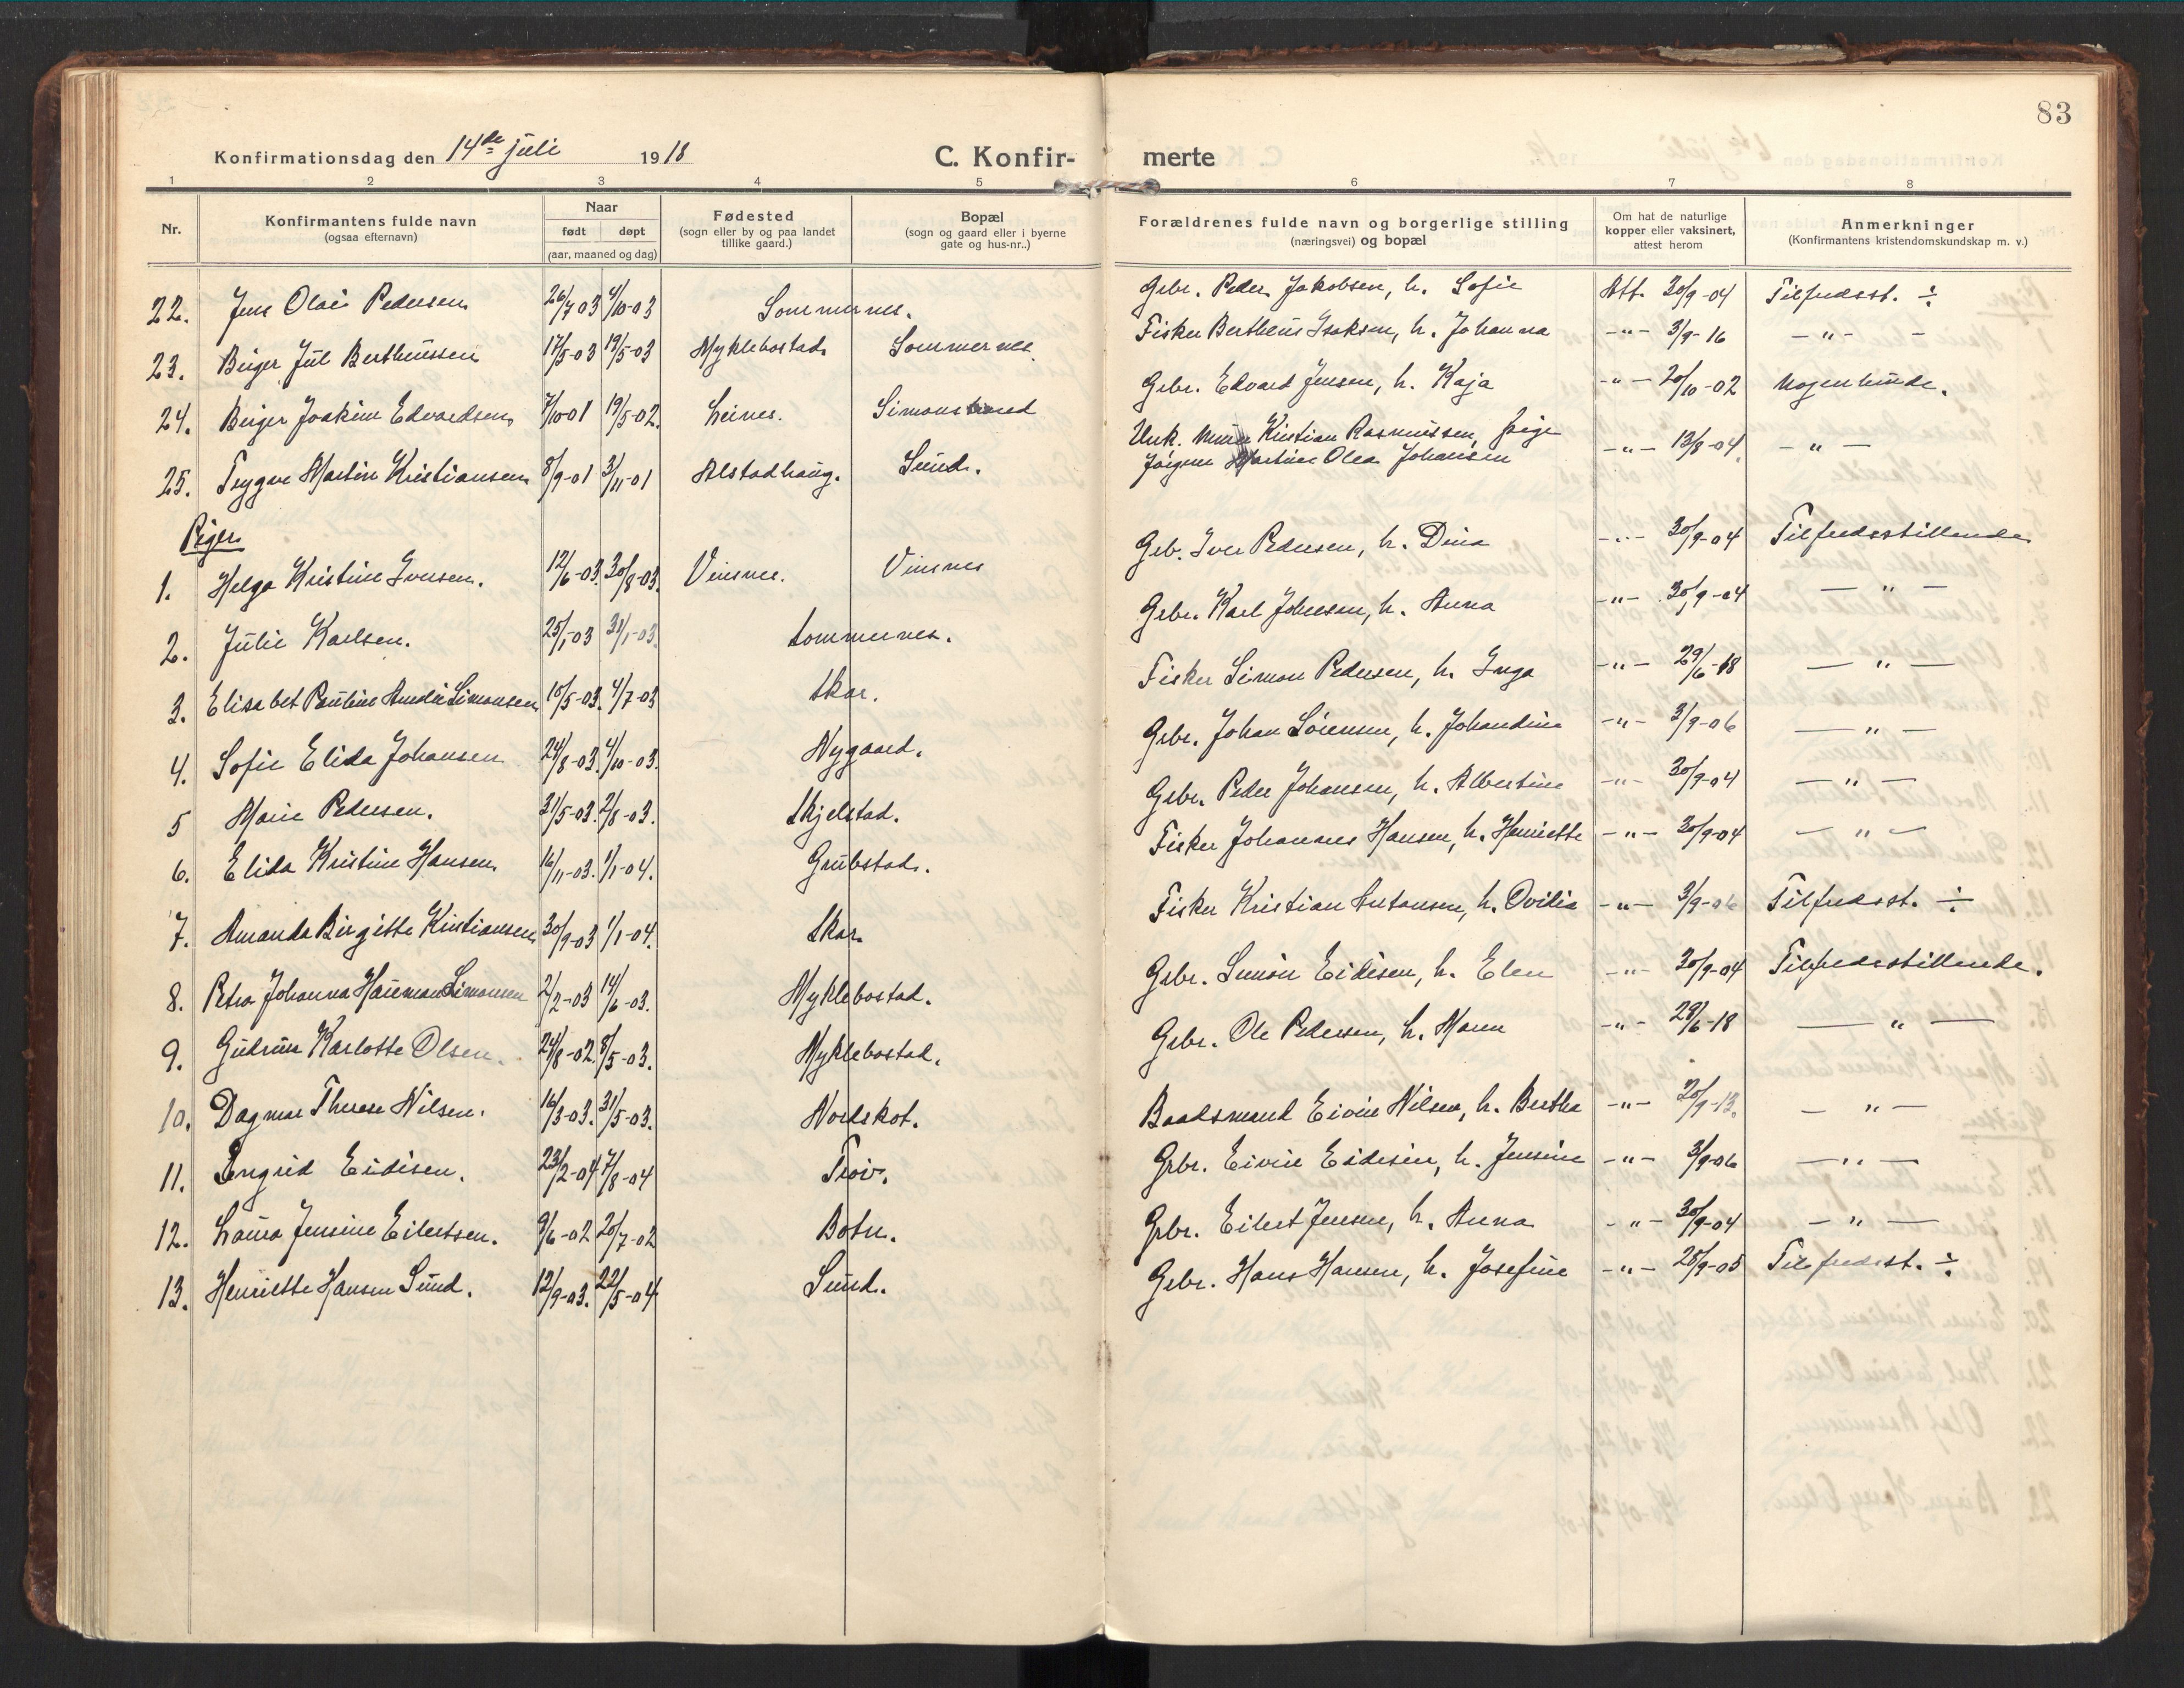 83
Konfirmationsdag den 14de juli 1918
C. Konfir- merte
1 2 3 4 5 6 7 8
Nr.
Konfirmantens fulde navn
(ogsaa efternavn)
Naar
født døpt
(aar, maaned og dag)
Fødested
(sogn eller by og paa landet
tillike gaard.)
Bopæl
(sogn og gaard eller i byerne
gate og hus-nr..)
Forældrenes fulde navn og borgerlige stilling
(næringsvei) og bopæl
Om hat de naturlige
kopper eller vaksinert,
attest herom
Anmerkninger
(Konfirmantens kristendomskundskap m. v.)
22. Jens Olai Pedersen 26/7 03 4/10-03 Sommernes. Gbr. Peder Jakobsen, h. Sofie Att. 30/9-04 Tilfredsst. ÷
23. Birger Jul Bertheussen 17/5-03 19/5-03 Myklebostad Sommernes. Fisker Bertheus Isaksen, h. Johanna -"- 3/9-16 -"- -
24. Birger Joakim Edvardsen 7/10-01 19/5-02. Leines. Simonstrand Gbr. Edvard Jensen, h. Kaja -"- 20/10-02 Nogenlunde.
25. Trygve Martin Kristiansen 8/9-01 3/11-01 Alstadhaug. Sund. Unk. Kristian Rasmussen, pige
Jørgine Martine Olea Johansen -"- 13/8-04. -"-
Piger
1. Helga Kristine Iversen. 12/6-03. 30/8-03. Vinsnes. Vinsnes Gbr. Iver Pedersen, h. Dina -"- 30/9-04 Tilfredsstillende
2. Julie Karlsen. 25/1-03 31/1-03. Sommernes. Gbr. Karl Johnsen, h. Anna -"- 30/9-04 -"-
3. Elisabet Pauline Amalie Simonsen 15/5-03. 4/7-03 Skar. Fisker Simon Pedersen, h. Inga -"- 29/6-18 -"-
4. Sofie Elida Johansen 24/8-03. 4/10-03. Nygaard. Gbr. Johan Sørensen, h. Johandine -"- 3/9-06 -"-
5 Marie Pedersen. 31/5-03. 2/8-03. Skjelstad. Gbr. Peder Johansen, h. Albertine -"- 30/9-04 -"-
6. Elida Kristine Hansen. 16/11-03. 1/1-04. Grubstad. Fisker Johannes Hansen, h. Henriette -"- 30/9-04 -"-
7. Amanda Birgitte Kristiansen 30/9-03 1/1-04. Skar. Fisker Kristian Antonsen, h. Ovilia -"- 3/9-06 Tilfredsst. ÷
8. Petra Johanna Hauman Simonsen 2/2-03 14/6-03. Myklebostad. Gbr. Simon Eidisen, h. Elen -"- 30/9-04 Tilfredsstillende.
9. Gudrun Karlotte Olsen. 24/8-02. 8/5-03. Myklebostad. Gbr. Ole Pedersen, h. Maren -"- 28/6-18 -"-
10. Dagmar Therese Nilsen. 16/3-03. 31/5-03. Nordskot. Baadsmand Eivin Nilsen, h. Bertha -"- 20/9-13. -"-
11. Ingrid Eidisen. 23/2-04 7/8-04 Trøv. Gbr. Eivin Eidisen, h. Jensine -"- 3/9-06 -"-
12. Laura Jensine Eilertsen. 9/6-02 20/7-02 Botn. Gbr. Eilert Jensen, h. Anna -"- 30/9-04 -"-
13. Henriette Hansen Sund. 12/9-03. 22/5-04 Sund. Gbr. Hans Hansen, h. Josefine -"- 25/9-05 Tilfredsst. ÷